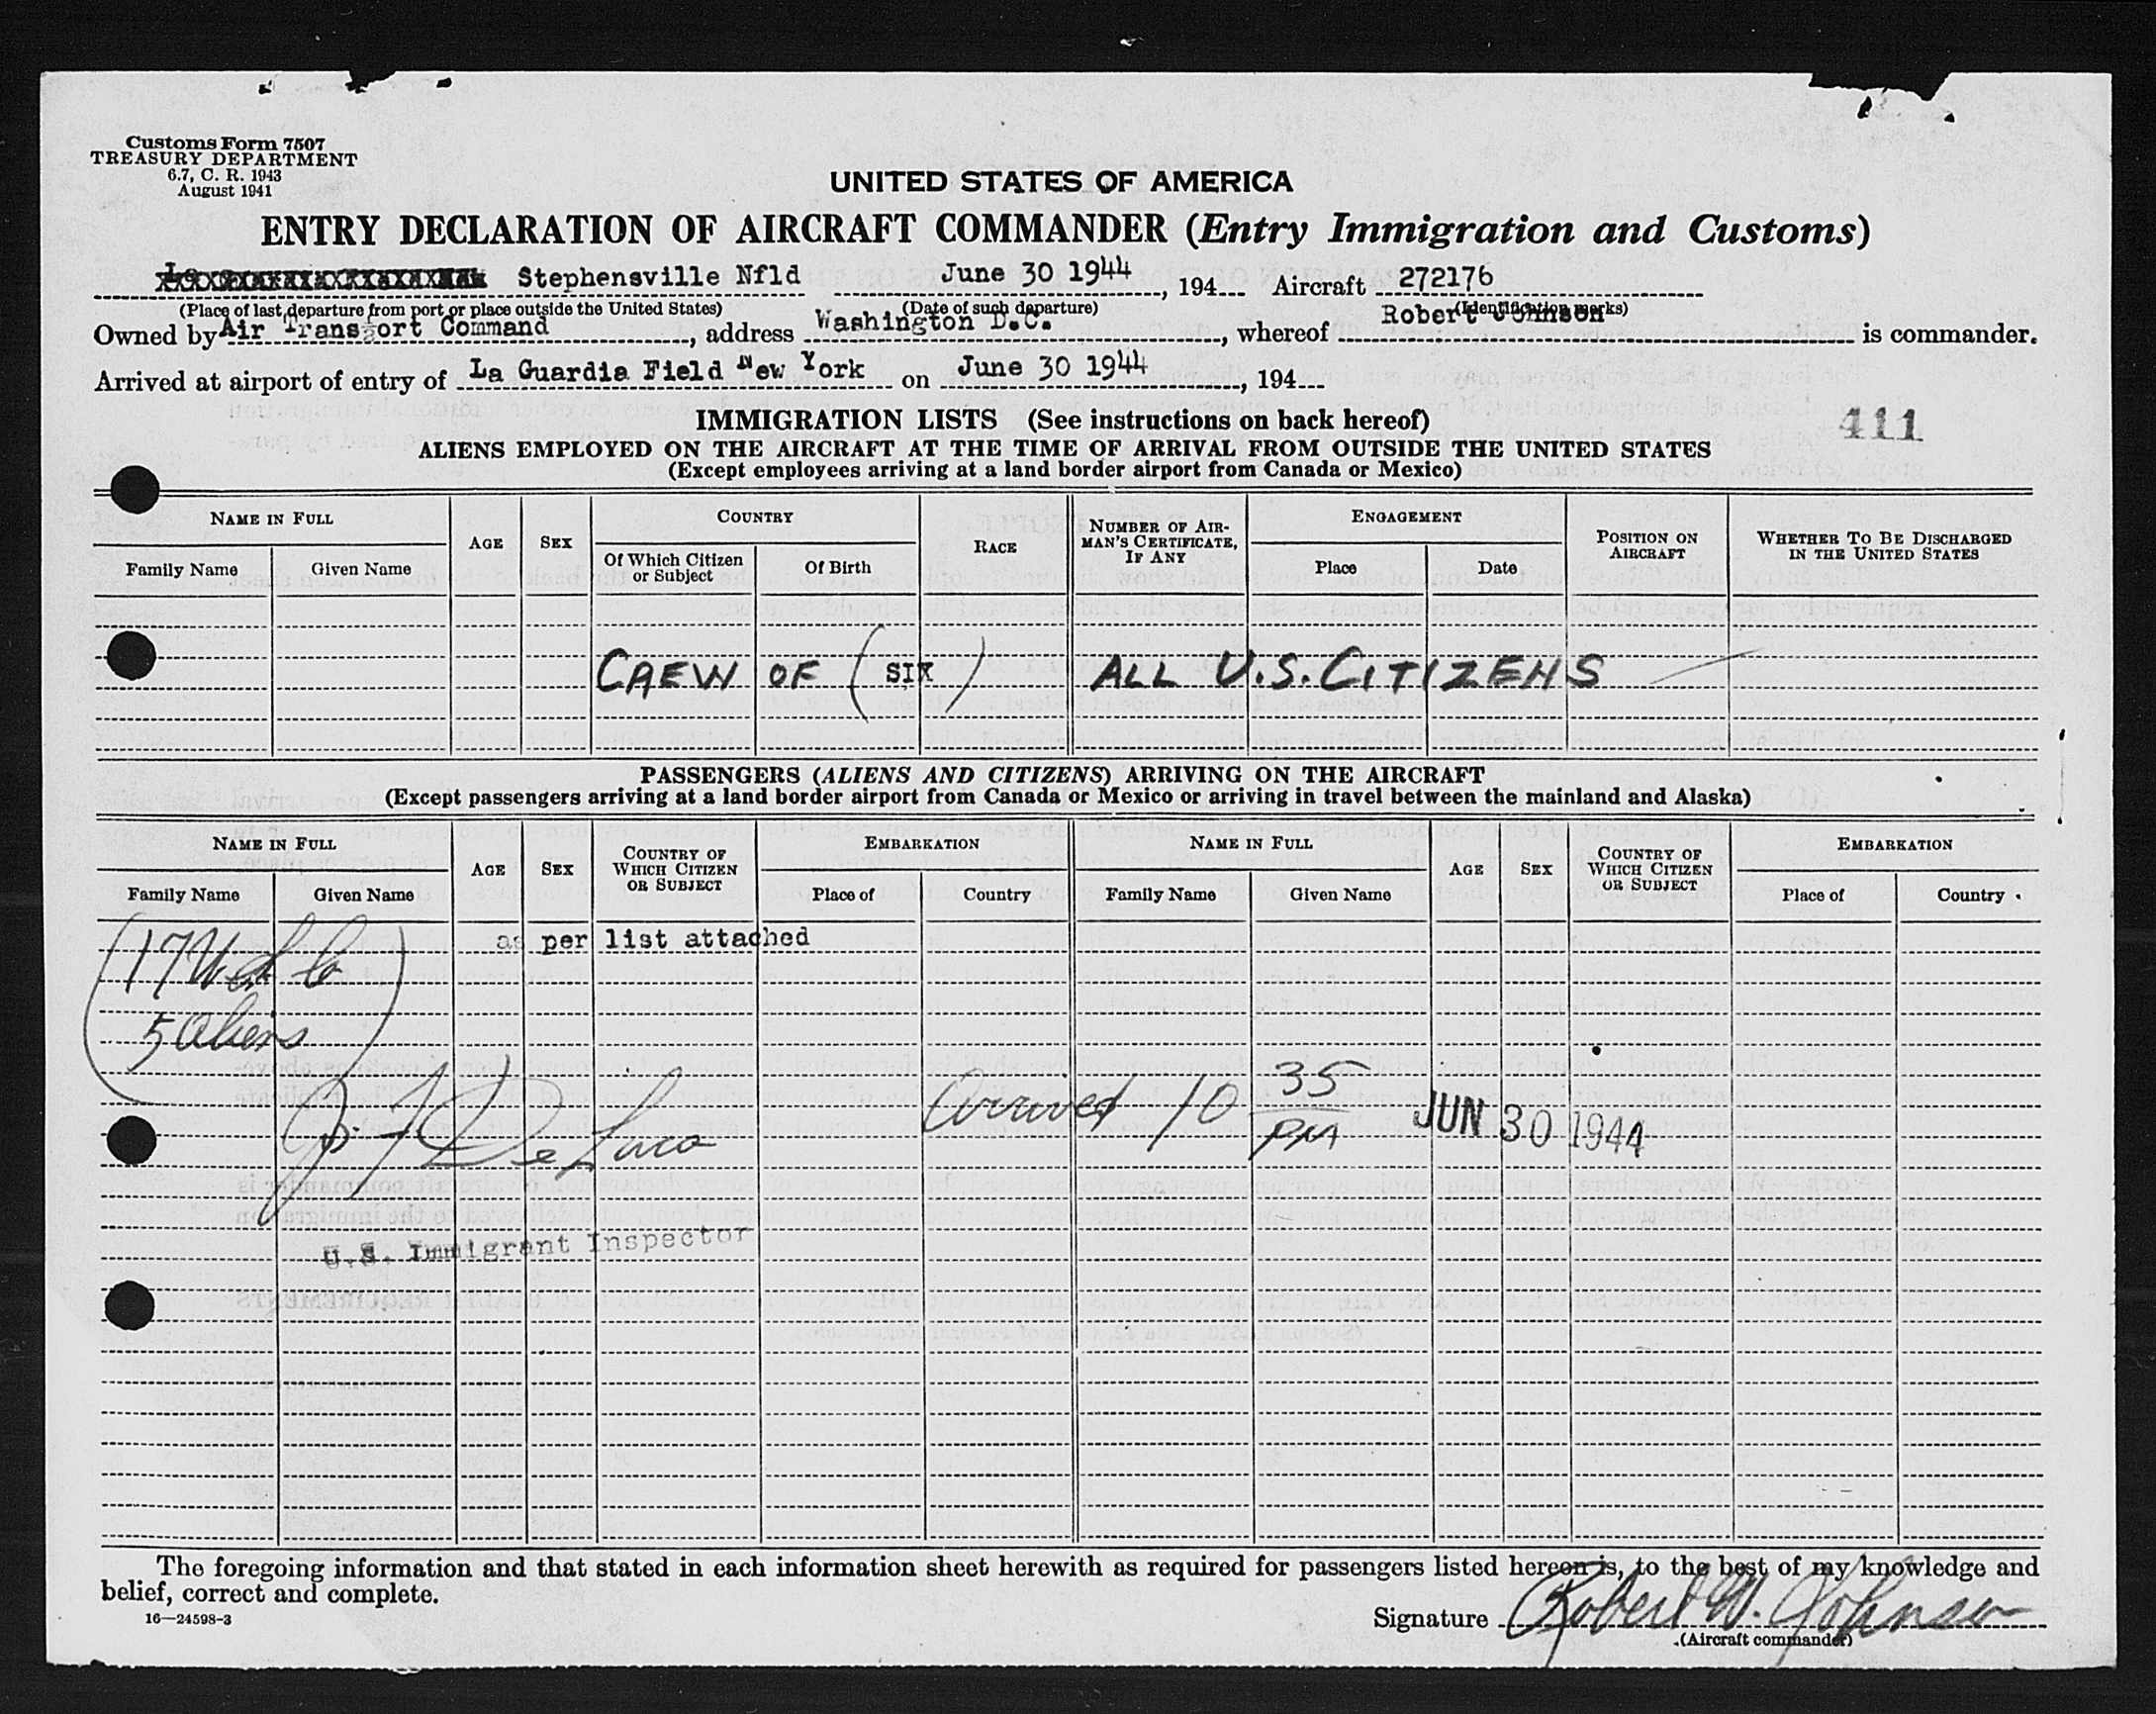 Customs Form 7507
TREASURY DEPARTMENT
6.7, C. R. 1943
August 1941
UNITED STATES OF AMERICA
ENTRY DECLARATION OF AIRCRAFT COMMANDER (Entry Immigration and Customs)
Stephensville Nfld June 30 1944, 194 Aircraft 272176
(Place of last departure from port or place outside the United States) (Date of such departure) (Identification marks)
Owned by Air Transport Command, address Washington D.C., whereof Robert Johnson is commander.
Arrived at airport of entry of La Guardia Field New York on June 30 1944, 194
IMMIGRATION LISTS (See instructions on back hereof)
411
ALIENS EMPLOYED ON THE AIRCRAFT AT THE TIME OF ARRIVAL FROM OUTSIDE THE UNITED STATES
(Except employees arriving at a land border airport from Canada or Mexico)
NAME IN FULL
Family Name Given Name
AGE
SEX
COUNTRY
Of Which Citizen or Subject
Of Birth
RACE
NUMBER OF AIRMAN'S CERTIFICATE, IF ANY
ENGAGEMENT
Place Date
POSITION ON AIRCRAFT
WHETHER TO BE DISCHARGED IN THE UNITED STATES
CREW OF (SIX) ALL U.S. CITIZENS
PASSENGERS (ALIENS AND CITIZENS) ARRIVING ON THE AIRCRAFT
(Except passengers arriving at a land border airport from Canada or Mexico or arriving in travel between the mainland and Alaska)
NAME IN FULL
Family Name Given Name
AGE
SEX
COUNTRY OF WHICH CITIZEN OR SUBJECT
EMBARKATION
Place of Country
NAME IN FULL
Family Name Given Name
AGE
SEX
COUNTRY OF WHICH CITIZEN OR SUBJECT
EMBARKATION
Place of Country
as per list attached
17
5 Aliens
J. F. De Luca
Arrived 10 35 PM JUN 30 1944
U.S. Immigrant Inspector
The foregoing information and that stated in each information sheet herewith as required for passengers listed hereon is, to the best of my knowledge and
belief, correct and complete.
16—24598-3
Signature Robert W. Johnson
(Aircraft commander)